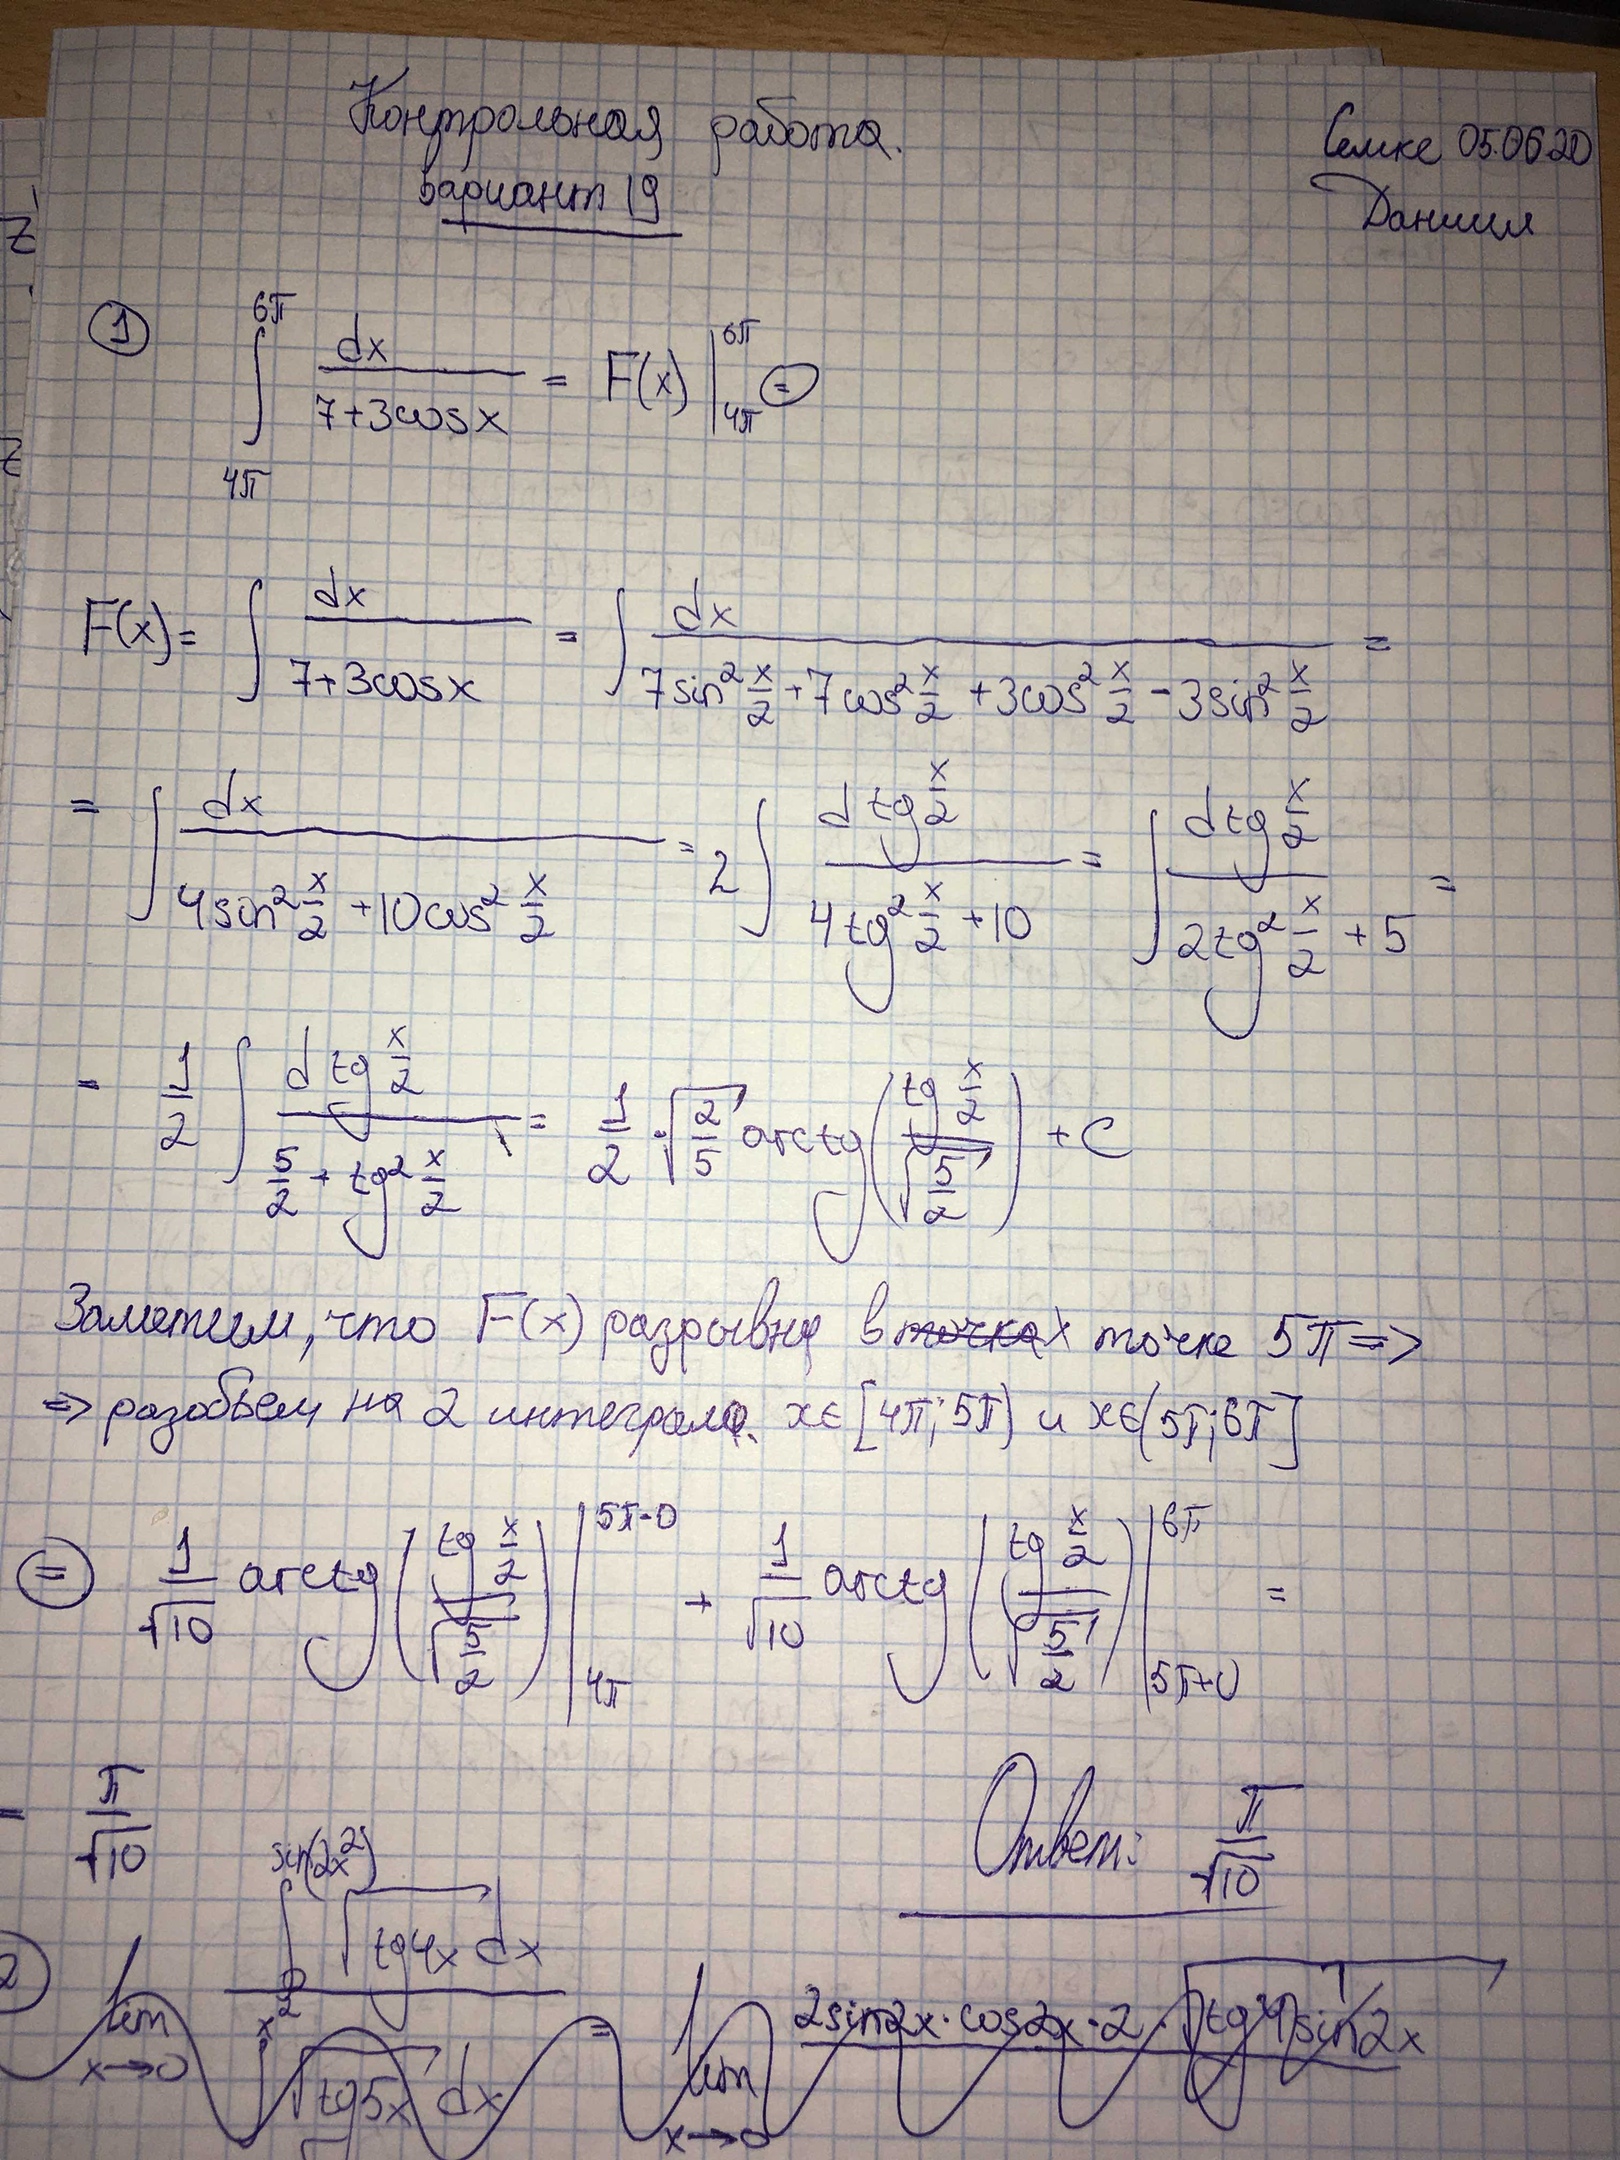 Контрольная работа.
вариант 19
Семке 05.06.20
Даниил
① ∫_{4π}^{6π} dx/(7+3cosx) = F(x) |_{4π}^{6π} ⊜
F(x) = ∫ dx/(7+3cosx) = ∫ dx/(7sin² x/2 + 7cos² x/2 + 3cos² x/2 - 3sin² x/2) =
= ∫ dx/(4sin² x/2 + 10cos² x/2) = 2∫ d tg x/2 /(4tg² x/2 + 10) = ∫ d tg x/2 /(2tg² x/2 + 5) =
= 1/2 ∫ d tg x/2 /(5/2 + tg² x/2) = 1/2 · √(2/5) arctg(tg x/2 / √(5/2)) + C
Заметим, что F(x) разрывна в точках точке 5π =>
=> разобьем на 2 интеграла. x∈[4π; 5π) и x∈(5π; 6π]
⊜ 1/√10 arctg(tg x/2 / √(5/2)) |_{4π}^{5π-0} + 1/√10 arctg(tg x/2 / √(5/2)) |_{5π+0}^{6π} =
= π/√10
Ответ: π/√10
2 lim_{x→0} ∫_0^{sin(2x²)} √(tg4x) dx / ∫^{x²} √(tg5x) dx = lim_{x→0} 2sin2x·cos2x·2·√(tg4 sin2x)